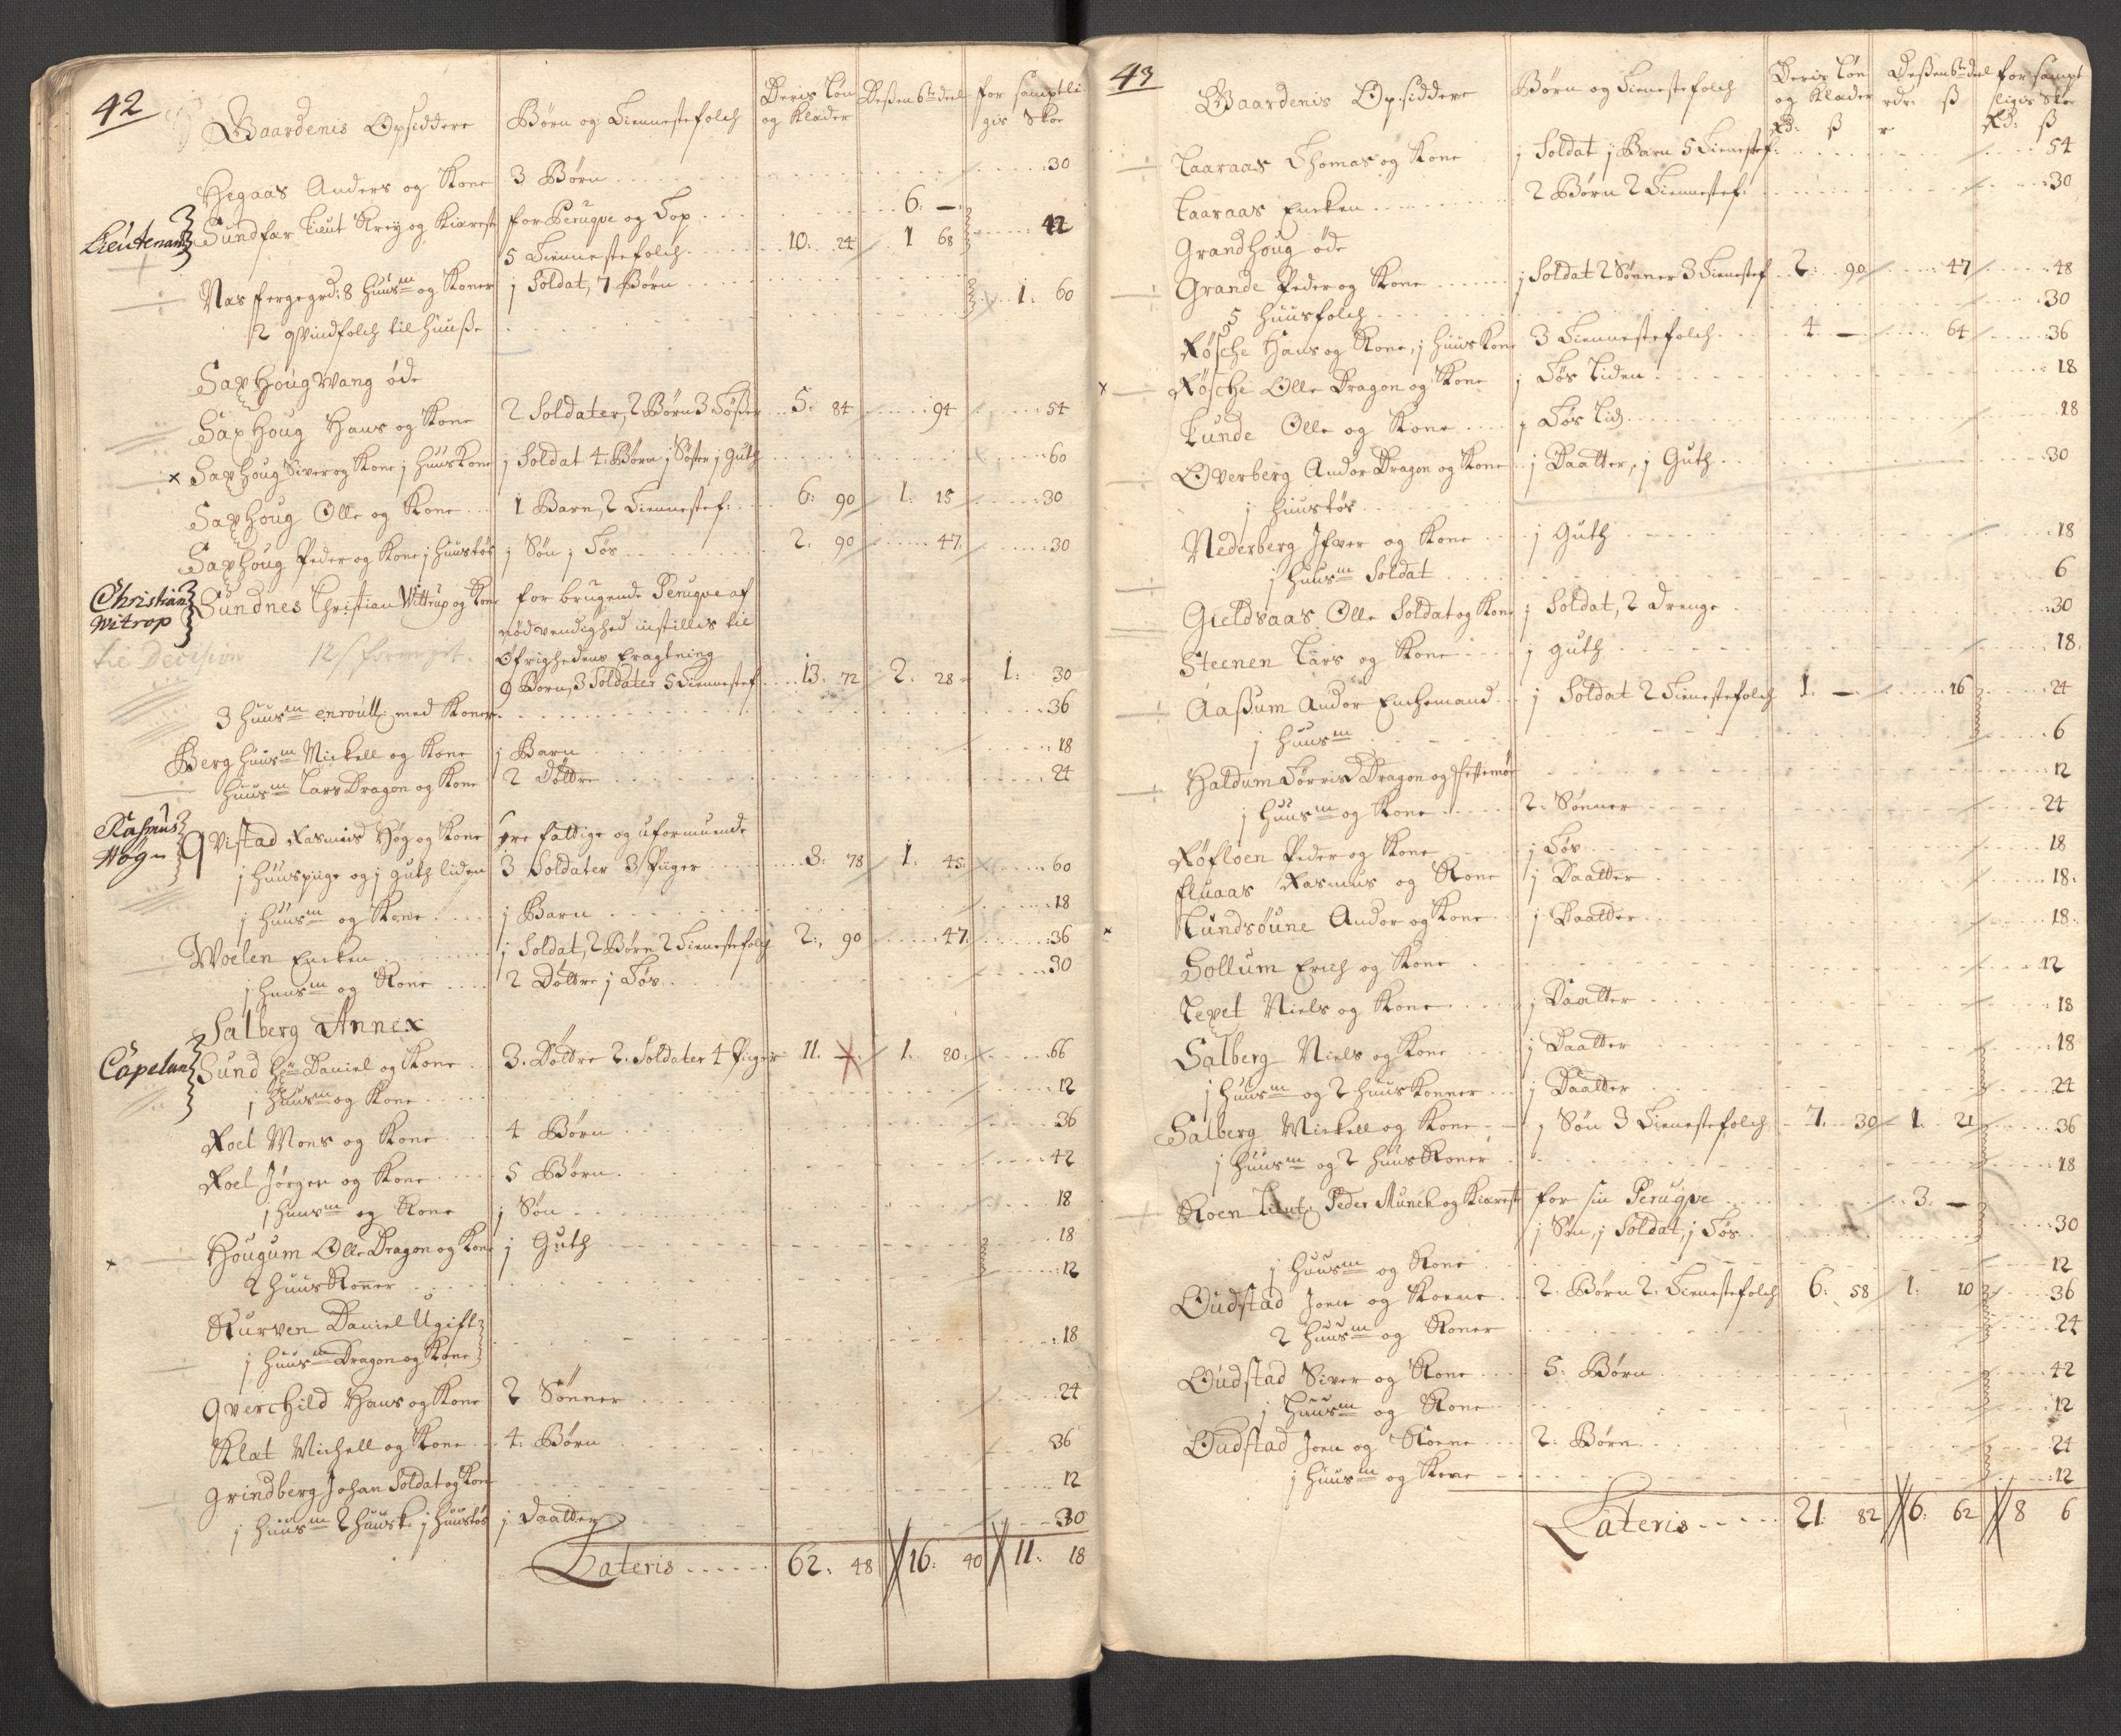 42
Gaardenis Opsiddere | Børn og Tiennestefolch | Deris Løn og Klæder | Deßen 6te deel | for samptligis Skoe
Hegaas Anders og Kone | 3 Børn | 30
Lieutenant
Sundfær Lieut Krey og Kiæreste | for Peruqve og Top | 6: —
5 Tiennestefolch | 10: 24 | 1 68 | 42
Næs fergegrd: 8 huusm og Koner | j Soldat, 7 Børn | 1: 60
2 qvindfolch til huuße
Saxhougwang øde
Saxhoug Hans og Kone | 2 Soldater, 2 Børn 3 Tøßer | 5: 84 | 94 | 54
x Saxhoug Siver og Kone j huuskone | j Soldat 4 Børn j Søster j guth | 60
Saxhoug Olle og Kone | 1 Barn, 2 Tiennestef: | 6: 90 | 1: 15 | 30
Saxhoug Peder og Kone j huustøs | j Søn j Tøs | 2: 90 | 47 | 30
Christian Witrop
Sundnes Christian Wittrup og Kone | for brugende Peruqve af
nødvendighed instillis til
til Decision
Øfrighedens Eragtning
9 Børn, 3 Soldater 5 Tiennestef | 13: 72 | 2: 28 | 1: 30
3 huusm enroull: med Koner | 36
Berg huusm Mickell og Kone | j Barn | 18
huusm Lars Dragon og Kone | 2 døttre | 24
Rasmus Høg
Qvistad Rasmus Høg og Kone | Ere fattige og uformuende
j huuspige og j guth liden | 3 Soldater 3 Piiger | 3: 78 | 1: 45 | 60
j huusm og Kone | j Barn | 18
Woelen Encken | j Soldat, 2 Børn 2 Tienestefolch | 2: 90 | 47 | 36
j huusm og Kone | 2 Døttre j Tøs | 30
Salberg Annex
Capelan
Sund Hr Daniel og Kone | 3. Døttre 2. Soldater 4 Piiger | 11. | 1. 80 | 66
j huusm og Kone | 12
Roel Mons og Kone | 4 Børn | 36
Roel Jørgen og Kone | 5 Børn | 42
j huusm og Kone | j Søn | 18
x Hougum Olle Dragon og Kone | j Guth | 18
2 huusKoner | 12
Kurven Daniel Ugift
j huusm Dragon og Kone | 18
Qverchild Hans og Kone | 2 Sønner | 24
Klat Michell og Kone | 4. Børn | 36
Grindberg Johan Soldat og Kone | 12
j huusm 2 huusk: j huustøs | j Daatter | 30
Lateris | 62: 48 | 16: 40 | 11: 18
43
Gaardenis Opsiddere | Børn og Tienestefolch | Deris Løn og Klæder | Deßen 6te deel | for samptligis Skoe
Rd: ß | rdr: ß | Rd: ß
Laaraas Thomas og Kone | j Soldat j Barn 5 Tienestef: | 54
Laaraas Encken | 2 Børn 2 Tiennestef: | 30
Grandhoug øde
Grande Peder og Kone | j Soldat 2 Sønner 3 Tienestef | 2: 90 | 47 | 48
5 huusfolch | 30
Røsche Hans og Kone, j huuskone | 3 Tiennestefolch | 4 — | 64 | 36
x Røsche Olle Dragon og Kone | j Tøs liden | 18
Lunde Olle og Kone | j Tøs lid | 18
Overberg Andor Dragon og Kone | j Daatter, j Guth | 30
j huustøs
Nederberg Ifver og Kone | j Guth | 18
j huusm Soldat | 6
Gieldsaas Olle Soldat og Kone | j Soldat, 2 drenge | 30
Steenen Lars og Kone | j guth | 18
Aaßum Andor Enchemand | j Soldat 2 Tienestefolch | 1. — | 16 | 24
j huusm | 6
Haldum Tørris Dragon og festemøe | 12
j huusm og Kone | 2. Sønner | 24
Røfloen Peder og Kone | j Tøs | 18
Fluaas Rasmus og Kone | j Daatter | 18
x Lundsøune Andor og Kone | j Daatter | 18
Hollum Erich og Kone | 12
Lexet Niels og Kone | j Daatter | 18
Salberg Niels og Kone | j Daatter | 18
j huusm og 2 huuskonner | j Daatter | 24
Salberg Mickell og Kone | j Søn 3 Tienestefolch | 7. 30 | 1. 21 | 36
j huusm og 2 huusKoner | 18
Roen Lieut: Peder Munch og Kiæreste | for sin Peruqve | 3. —
j Søn, j Soldat, j Tøs | 30
j huusm og Kone | 12
Oudstad Joen og Kone | 2. Børn 2. Tienestefolch | 6. 58 | 1. 10 | 36
2 huusm og Koner | 24
Oudstad Siver og Kone | 5. Børn | 42
j huusm og Kone | 12
Oudstad Joen og Kone | 2. Børn | 24
j huusm og Kone | 12
Lateris | 21. 82 | 6. 62 | 8 6